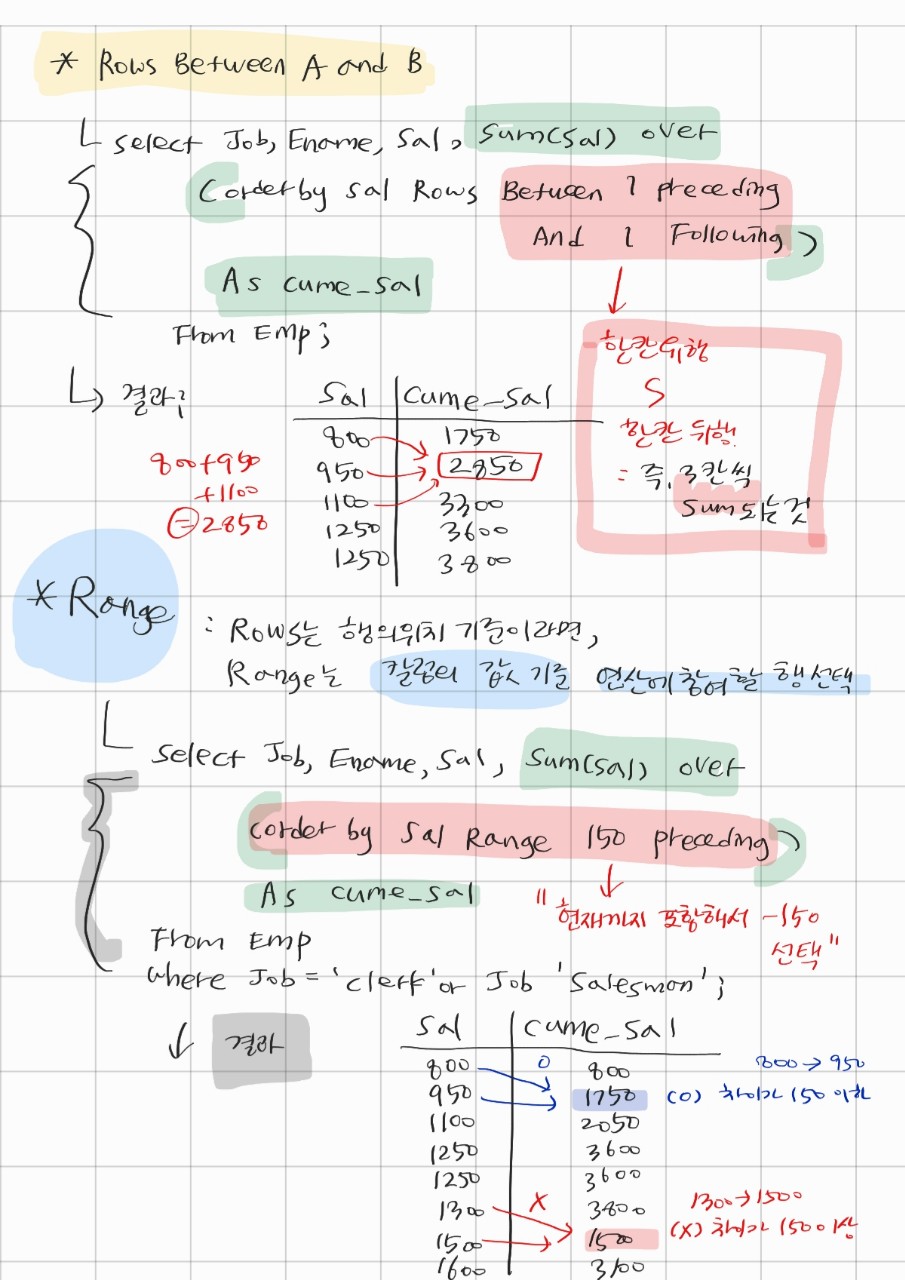 * Rows Between A and B
└ select Job, Ename, Sal, Sum(Sal) over
(order by sal Rows Between 1 preceding
And 1 Following)
As cume_sal
From Emp;
↓
한칸위행
S
한칸 뒤행
: 즉, 3칸씩
Sum되는것
↳ 결과;
Sal cume_sal
800 1750
950 2850
1100 3300
1250 3600
1250 3800
800+950
+1100
=2850
* Range
: Rows는 행의위치 기준이라면,
Range는 칼럼의 값 기준 연산에 참여할 행 선택
└ select Job, Ename, Sal, Sum(sal) over
(order by Sal Range 150 preceding)
As cume_sal
↓
"현재까지 포함해서 -150
선택"
From Emp
where Job='clerk' or Job 'Salesman';
↓ 결과
Sal cume_sal
800 O 800
950 1750
1100 2050
1250 3600
1250 3600
1300 X 3800
1500 1500
1600 3100
800→950
(O) 차이가 150 이하
1300→1500
(X) 차이가 150 이상